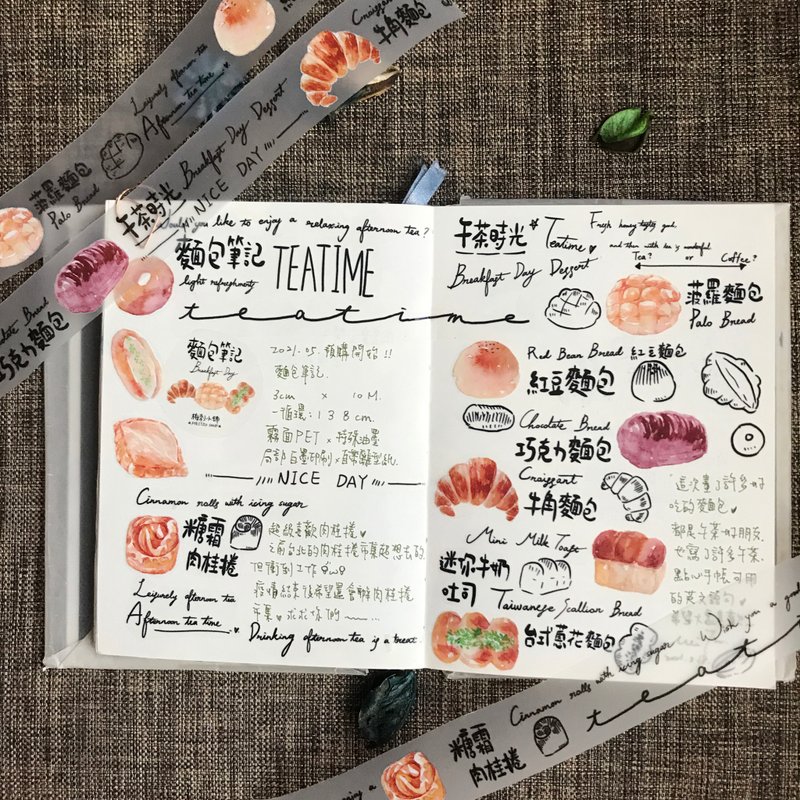 Craissant
牛角麵包
Leisurely afternoon tea
Afternoon tea time
Breakfast Day Dessert
NICE DAY
菠羅麵包
Palo Bread
午茶時光
Chocolate Bread
巧克力麵包
Would you like to enjoy a relaxing afternoon tea?
麵包筆記
TEATIME
light refreshments
teatime
麵包筆記
Breakfast Day
2021.05. 預購開始!!
麵包筆記.
3cm x 10M.
一循環:138cm.
霧面PET x 特殊油墨
局部白墨印刷 x 百摺離型紙
NICE DAY
Cinnamon rolls with icing sugar
糖霜
肉桂捲
超級喜歡肉桂捲
之前台北的肉桂捲市集超想去的
但衝到工作
疫情結束後希望還會辦肉桂捲
市集 求求你們
Leisurely afternoon tea
Afternoon tea time
Drinking afternoon tea is a treat
午茶時光
Teatime
Breakfast Day Dessert
and then with tea is wonderful
Tea? or Coffee?
菠羅麵包
Palo Bread
Red Bean Bread 紅豆麵包
紅豆麵包
Chocolate Bread
巧克力麵包
Craissant
牛角麵包
Mini Milk Toast
迷你牛奶
吐司
Taiwanese Scallion Bread
台式蔥花麵包
這次畫了許多好
吃的麵包
都是午茶好朋友
也寫了許多午茶
點心手帳可用
的英文語句
Wish you a good
Cinnamon rolls with icing sugar
糖霜
肉桂捲